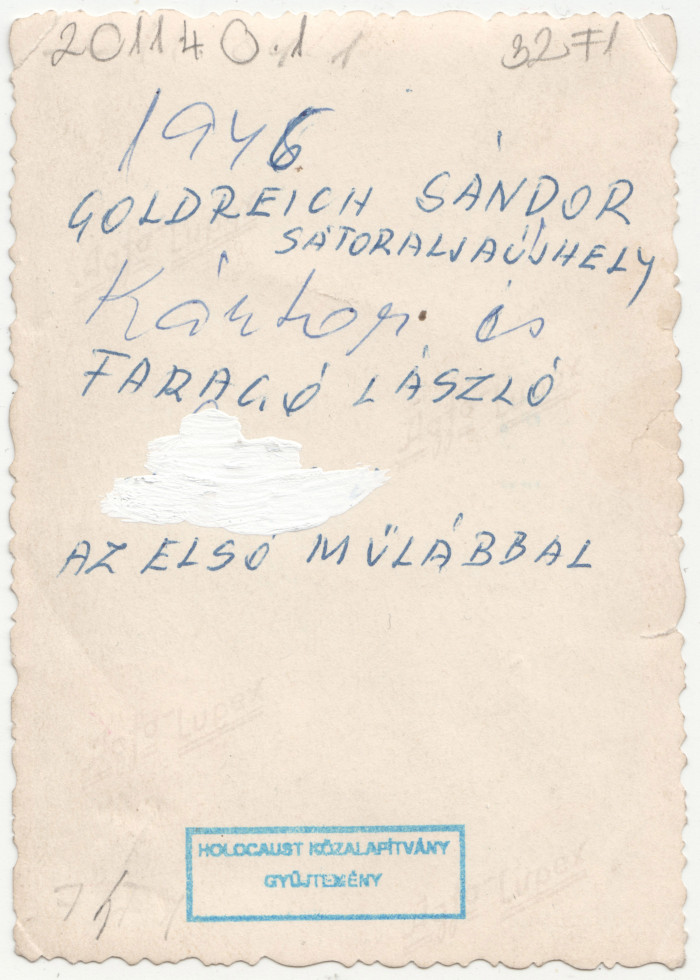 2011 40.1 3271
1946
GOLDREICH SÁNDOR
SÁTORALJAÚJHELY
Kántor és
FARAGÓ LÁSZLÓ
AZ ELSŐ MŰLÁBBAL
Agfa Lupex
Agfa Lupex
Agfa Lupex
HOLOCAUST KÖZALAPÍTVÁNY
GYŰJTEMÉNY
Agfa Lupex